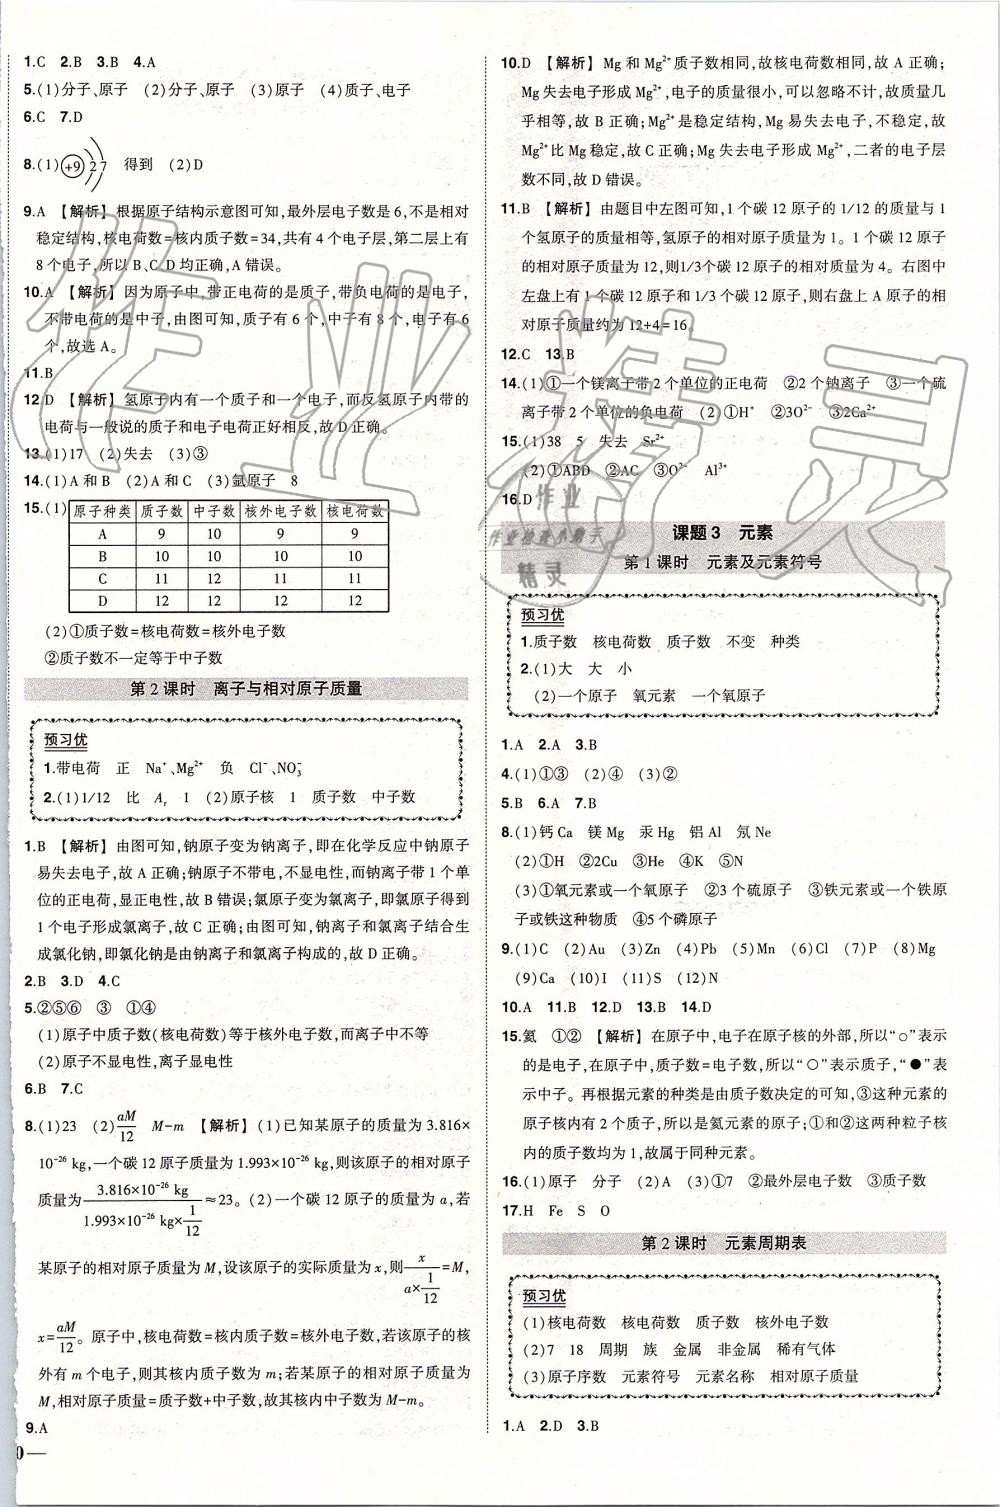 1.C 2.B 3.B 4.A
5.(1)分子、原子 (2)分子、原子 (3)原子 (4)质子、电子
6.C 7.D
8.(1) +9 2 7 得到 (2)D
9.A 【解析】根据原子结构示意图可知,最外层电子数是6,不是相对
稳定结构,核电荷数=核内质子数=34,共有4个电子层,第二层上有
8个电子,所以B、C、D均正确,A错误。
10.A 【解析】因为原子中,带正电荷的是质子,带负电荷的是电子,
不带电荷的是中子,由图可知,质子有6个,中子有8个,电子有6
个,故选A。
11.B
12.D 【解析】氢原子内有一个质子和一个电子,而反氢原子内带的
电荷与一般说的质子和电子电荷正好相反,故D正确。
13.(1)17 (2)失去 (3)③
14.(1)A和B (2)A和C (3)氩原子 8
15.(1) 原子种类 质子数 中子数 核外电子数 核电荷数
A 9 10 9 9
B 10 10 10 10
C 11 12 11 11
D 12 12 12 12
(2)①质子数=核电荷数=核外电子数
②质子数不一定等于中子数
第2课时 离子与相对原子质量
预习优
1.带电荷 正 Na⁺、Mg²⁺ 负 Cl⁻、NO₃⁻
2.(1)1/12 比 Aᵣ 1 (2)原子核 1 质子数 中子数
1.B 【解析】由图可知,钠原子变为钠离子,即在化学反应中钠原子
易失去电子,故A正确;钠原子不带电,不显电性,而钠离子带1个单
位的正电荷,显正电性,故B错误;氯原子变为氯离子,即氯原子得到
1个电子形成氯离子,故C正确;由图可知,钠离子和氯离子结合生
成氯化钠,即氯化钠是由钠离子和氯离子构成的,故D正确。
2.B 3.D 4.C
5.②⑤⑥ ③ ①④
(1)原子中质子数(核电荷数)等于核外电子数,而离子中不等
(2)原子不显电性,离子显电性
6.B 7.C
8.(1)23 (2)aM/12 M-m 【解析】(1)已知某原子的质量为3.816×
10⁻²⁶ kg,一个碳12原子质量为1.993×10⁻²⁶ kg,则该原子的相对原子
质量为 3.816×10⁻²⁶ kg/(1.993×10⁻²⁶ kg×1/12) ≈23。(2)一个碳12原子的质量为a,若
某原子的相对原子质量为M,设该原子的实际质量为x,则 x/(a×1/12) =M,
x=aM/12。原子中,核电荷数=核内质子数=核外电子数,若该原子的核
外有m个电子,则其核内质子数为m;若某原子的相对原子质量为
M,相对原子质量=质子数+中子数,故其核内中子数为M-m。
9.A
0—
10.D 【解析】Mg和Mg²⁺质子数相同,故核电荷数相同,故A正确;
Mg失去电子形成Mg²⁺,电子的质量很小,可以忽略不计,故质量几
乎相等,故B正确;Mg²⁺是稳定结构,Mg易失去电子,不稳定,故
Mg²⁺比Mg稳定,故C正确;Mg失去电子形成Mg²⁺,二者的电子层
数不同,故D错误。
11.B 【解析】由题目中左图可知,1个碳12原子的1/12的质量与1
个氢原子的质量相等,氢原子的相对原子质量为1。1个碳12原子
的相对原子质量为12,则1/3个碳12原子的相对质量为4。右图中
左盘上有1个碳12原子和1/3个碳12原子,则右盘上A原子的相
对原子质量约为12+4=16。
12.C 13.B
14.(1)①一个镁离子带2个单位的正电荷 ②2个钠离子 ③一个硫
离子带2个单位的负电荷 (2)①H⁺ ②3O²⁻ ③2Ca²⁺
15.(1)38 5 失去 Sr²⁺
(2)①ABD ②AC ③O²⁻ Al³⁺
16.D
课题3 元素
第1课时 元素及元素符号
预习优
1.质子数 核电荷数 质子数 不变 种类
2.(1)大 大 小
(2)一个原子 氧元素 一个氧原子
1.A 2.A 3.B
4.(1)①③ (2)④ (3)②
5.B 6.A 7.B
8.(1)钙Ca 镁Mg 汞Hg 铝Al 氖Ne
(2)①H ②2Cu ③He ④K ⑤N
(3)①氧元素或一个氧原子 ②3个硫原子 ③铁元素或一个铁原
子或铁这种物质 ④5个磷原子
9.(1)C (2)Au (3)Zn (4)Pb (5)Mn (6)Cl (7)P (8)Mg
(9)Ca (10)I (11)S (12)N
10.A 11.B 12.D 13.B 14.D
15.氦 ①② 【解析】在原子中,电子在原子核的外部,所以“○”表示
的是电子,在原子中,质子数=电子数,所以“○”表示质子,“●”表
示中子。再根据元素的种类是由质子数决定的可知,③这种元素的
原子核内有2个质子,所以是氦元素的原子;①和②这两种粒子核
内的质子数均为1,故属于同种元素。
16.(1)原子 分子 (2)A (3)①7 ②最外层电子数 ③质子数
17.H Fe S O
第2课时 元素周期表
预习优
(1)核电荷数 核电荷数 质子数 核外电子数
(2)7 18 周期 族 金属 非金属 稀有气体
(3)原子序数 元素符号 元素名称 相对原子质量
1.A 2.D 3.B
作业精灵
作业
作业检查小帮手
精灵